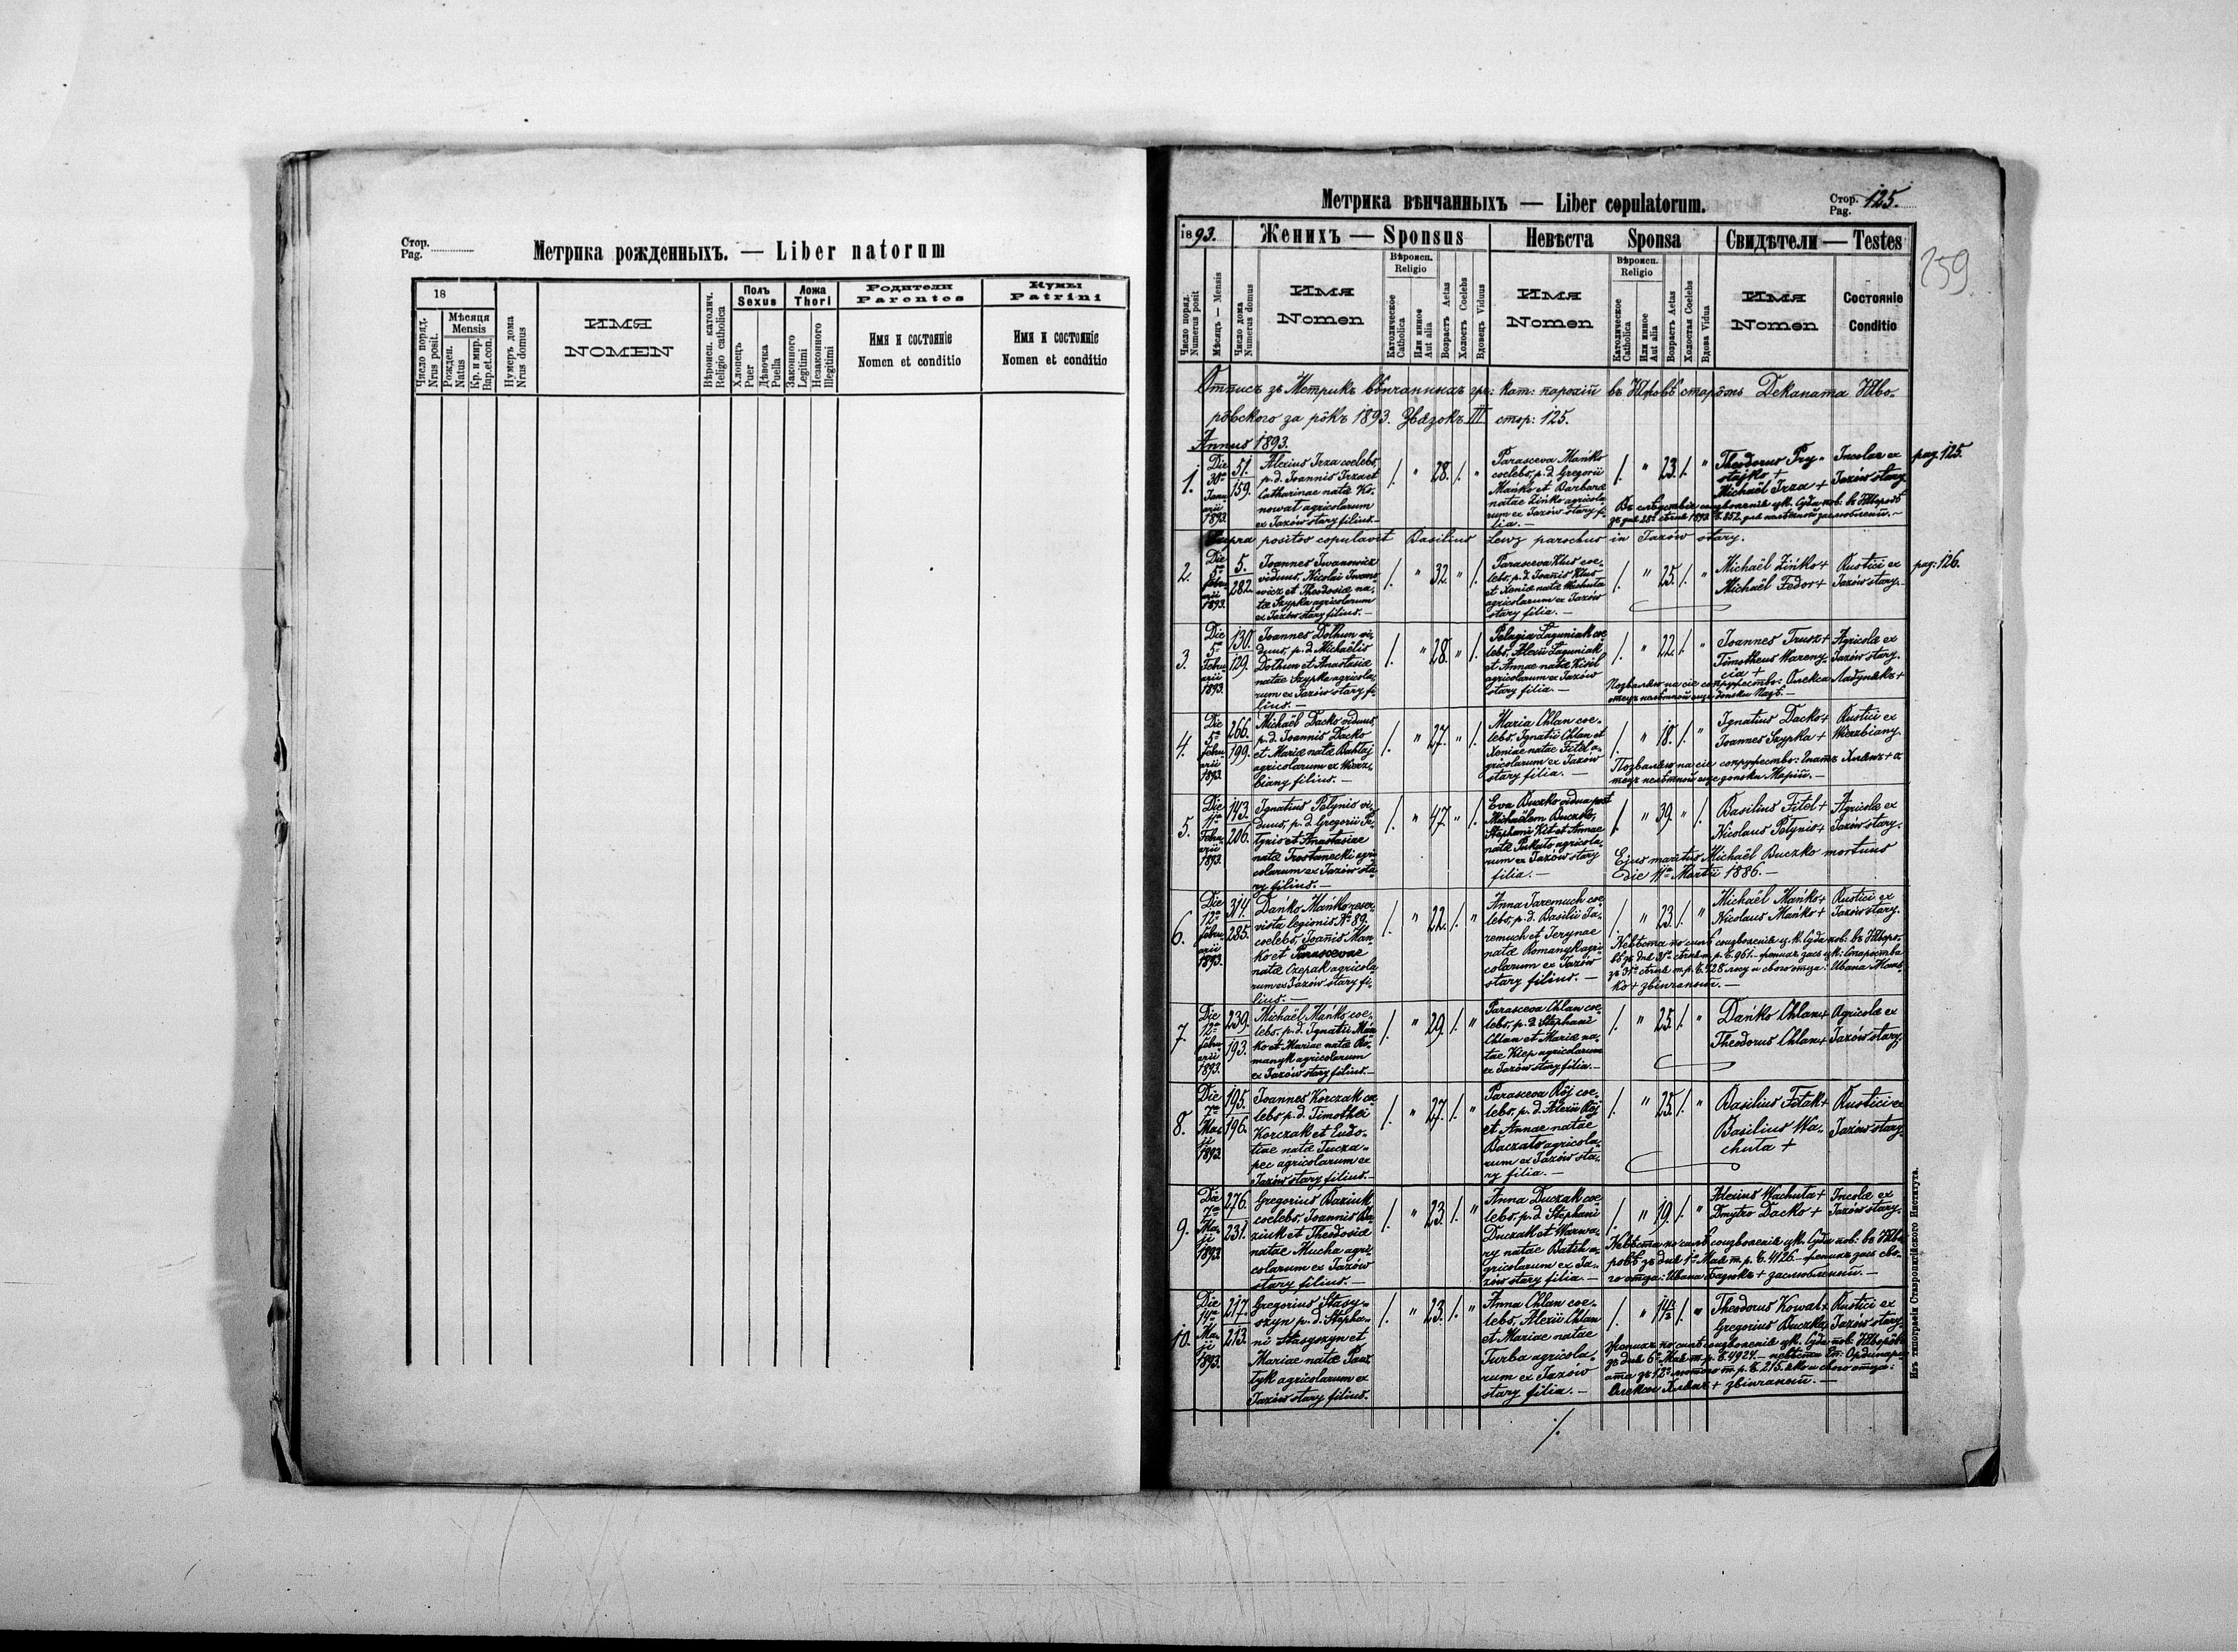 Стор.
Pag.
Метрика рожденныхъ. — Liber natorum
18
Число поряд.
Nrus posit.
Мѣсяця
Mensis
Рожден.
Natus
Кр. и мир.
Bap.et.con.
Нумеръ дома
Nrus domus
ИМЯ
NOMEN
Вѣроисп. католич.
Religio catholica
Полъ
Sexus
Хлопець
Puer
Дѣвочка
Puella
Ложа
Thori
Законного
Legitimi
Незаконного
Illegitimi
Родители
Parentes
Имя и состояніе
Nomen et conditio
Кумы
Patrini
Имя и состояніе
Nomen et conditio
Метрика вѣнчанныхъ — Liber copulatorum.
Стор.
Pag. 125.
259
1893.
Женихъ — Sponsus
Невѣста Sponsa
Свидѣтели — Testes
Число поряд.
Numerus posit
Мѣсяць — Mensis
Число дома
Numerus domus
Имя
Nomen
Вѣроисп.
Religio
Католическое
Catholica
Или иное
Aut alia
Возрастъ Aetas
Холостъ Coelebs
Вдовець Viduus
Имя
Nomen
Вѣроисп.
Religio
Католическое
Catholica
Или иное
Aut alia
Возрастъ Aetas
Холостая Coelebs
Вдова Vidua
Имя
Nomen
Состояніе
Conditio
Отписъ зъ Метрикъ вѣнчанныхъ гр: кат: парохіи въ Язовѣ старомъ Деканата Яво-
рôвского за рôкъ 1893. Звязокъ III стор: 125.
Annus 1893.
1.
Die
30a
Janu
arii
1893.
51.
159.
Alexius Irza coelebs,
p. d. Joannis Irza et
Catharinae natæ Ko-
nowat agricolarum
ex Jazów stary filius.—
/. " 28. /. "
Parasceva Mańko
coelebs, p. d. Gregorii
Mańko et Barbaræ
natae Zińko agricola-
rum ex Jazów stary fi-
lia.—
/. " 23. /. "
Theodorus Pry-
stajko +
Michaël Irza +
Incolae ex
Jazów stary.
pag. 125.
Supra positos copulavit Basilius Lewz parochus in Jazów stary.
2.
Die
5a
Febru
arii
1893.
5.
282.
Joannes Iwanowicz
viduus, Nicolai Iwano
wicz et Theodosiæ na-
tæ Szypka agricolarum
ex Jazów stary filius.—
/. " 32. " /.
Parasceva Klus coe-
lebs, p. d. Joannis Klus
et Xeniæ natæ Wachuta
agricolarum ex Jazów
stary filia.—
/. " 25. /. "
Michaël Zińko +
Michaël Fedor +
Rustici ex
Jazów stary.
pag: 126.
3.
Die
5a
Febru
arii
1893.
130.
129.
Joannes Dolhun vi-
duus, p. d. Michaëlis
Dolhun et Anastasiæ
natae Szypka agricola-
rum ex Jazów stary fi-
lius.—
/. " 28. " /.
Pelagia Laguniak coe
lebs, Alexii Laguniak
et Annae natæ Kisil
agricolarum ex Jazów
stary filia.—
/. " 22. /. "
Joannes Trusz +
Timotheus Wareny-
cia +
Agricolæ ex
Jazów stary.
4.
Die
5a
Febru
arii
1893.
266.
199.
Michaël Dacko viduus,
p. d. Joannis Dacko
et Mariæ natæ Bahtaj
agricolarum ex Wierz-
biany filius.—
/. " 27. " /.
Maria Chlan coe-
lebs, Ignatii Chlan et
Xeniae natae Fitel a-
gricolarum ex Jazów
stary filia.—
/. " 18. /. "
Ignatius Dacko +
Joannes Szypka +
Rustici ex
Wierzbiany.
5.
Die
11a
Febru
arii
1893.
143.
206.
Ignatius Petynio vi-
duus, p. d. Gregorii Pe-
tynio et Anastasiae
natæ Trostanecki agri
colarum ex Jazów sta
ry filius.—
/. " 47. " /.
Eva Buczko vidua post
Michaëlem Buczko,
Stephani Kit et Annae
natæ Pukato agricola-
rum ex Jazów stary
filia.—
/. " 39. " /.
Basilius Fitel +
Nicolaus Petynio +
Agricolæ ex
Jazów stary.
Ejus maritus Michaël Buczko mortuus
die 11a Martii 1886.—
6.
Die
12a
Febru
arii
1893.
314.
285.
Dańko Mańko reser
vista legionis No 89.
coelebs, Joannis Man-
ko et Parascevae
natæ Czepak agricola
rum ex Jazów stary fi-
lius.—
/. " 22. /. "
Anna Jaremuch coe
lebs, p. d. Basilii Ja-
remuch et Irynae
natæ Romanyk agri-
colarum ex Jazów
stary filius.—
/. " 23. /. "
Michaël Mańko +
Nicolaus Mańko +
Rustici ex
Jazów stary.
7.
Die
12a
Febru
arii
1893.
239.
193.
Michaël Mańko coe-
lebs, p. d. Ignatii Mań
ko et Mariae natæ Ro-
manyk agricolarum
ex Jazów stary filius.—
/. " 29. /. "
Parasceva Chlan coe-
lebs, p. d. Stephani
Chlan et Mariæ na-
tae Kiep agricolarum
ex Jazów stary filia.—
/. " 25. /. "
Dańko Chlan +
Theodorus Chlan +
Agricolæ ex
Jazów stary.
8.
Die
7a
Maji
1893.
195.
196.
Joannes Korczak coe
lebs p. d. Timothei
Korczak et Eudo-
tiae natæ Tucza-
pec agricolarum ex
Jazów stary filius.—
/. " 27. /. "
Parasceva Rój coe-
lebs, p. d. Alexii Rój
et Annae natae
Baczato agricola-
rum ex Jazów sta-
ry filia.—
/. " 25. /. "
Basilius Fitak +
Basilius Wa-
chuta +
Rustici ex
Jazów stary.
9.
Die
7a
Ma-
ji
1893.
276.
231.
Gregorius Baziuk
coelebs, Joannis Ba-
ziuk et Theodosiæ
natae Mucha agri-
colarum ex Jazów
stary filius.—
/. " 23. /. "
Anna Duczak coe
lebs, p. d. Stephani
Duczak et Warwa-
ry natae Batih a-
gricolarum ex Ja-
zów stary filia.—
/. " 19. /. "
Alexius Wachuta +
Dmytro Dacko +
Incolæ ex
Jazów stary.
10.
Die
14a
Ma-
ji
1893.
217.
213.
Gregorius Stasy-
szyn p. d. Stepha-
ni Stasyszyn et
Mariae natæ Paw
tyk agricolarum ex
Jazów stary filius.
/. " 23. /. "
Anna Chlan coe-
lebs, Alexii Chlan
et Mariae natae
Turba agricola-
rum ex Jazów
stary filia.—
/. " /. "
Theodorus Kowal +
Gregorius Buczko +
Rustici ex
Jazów stary.
/.
Изъ типографіи Ставропигійского Института.